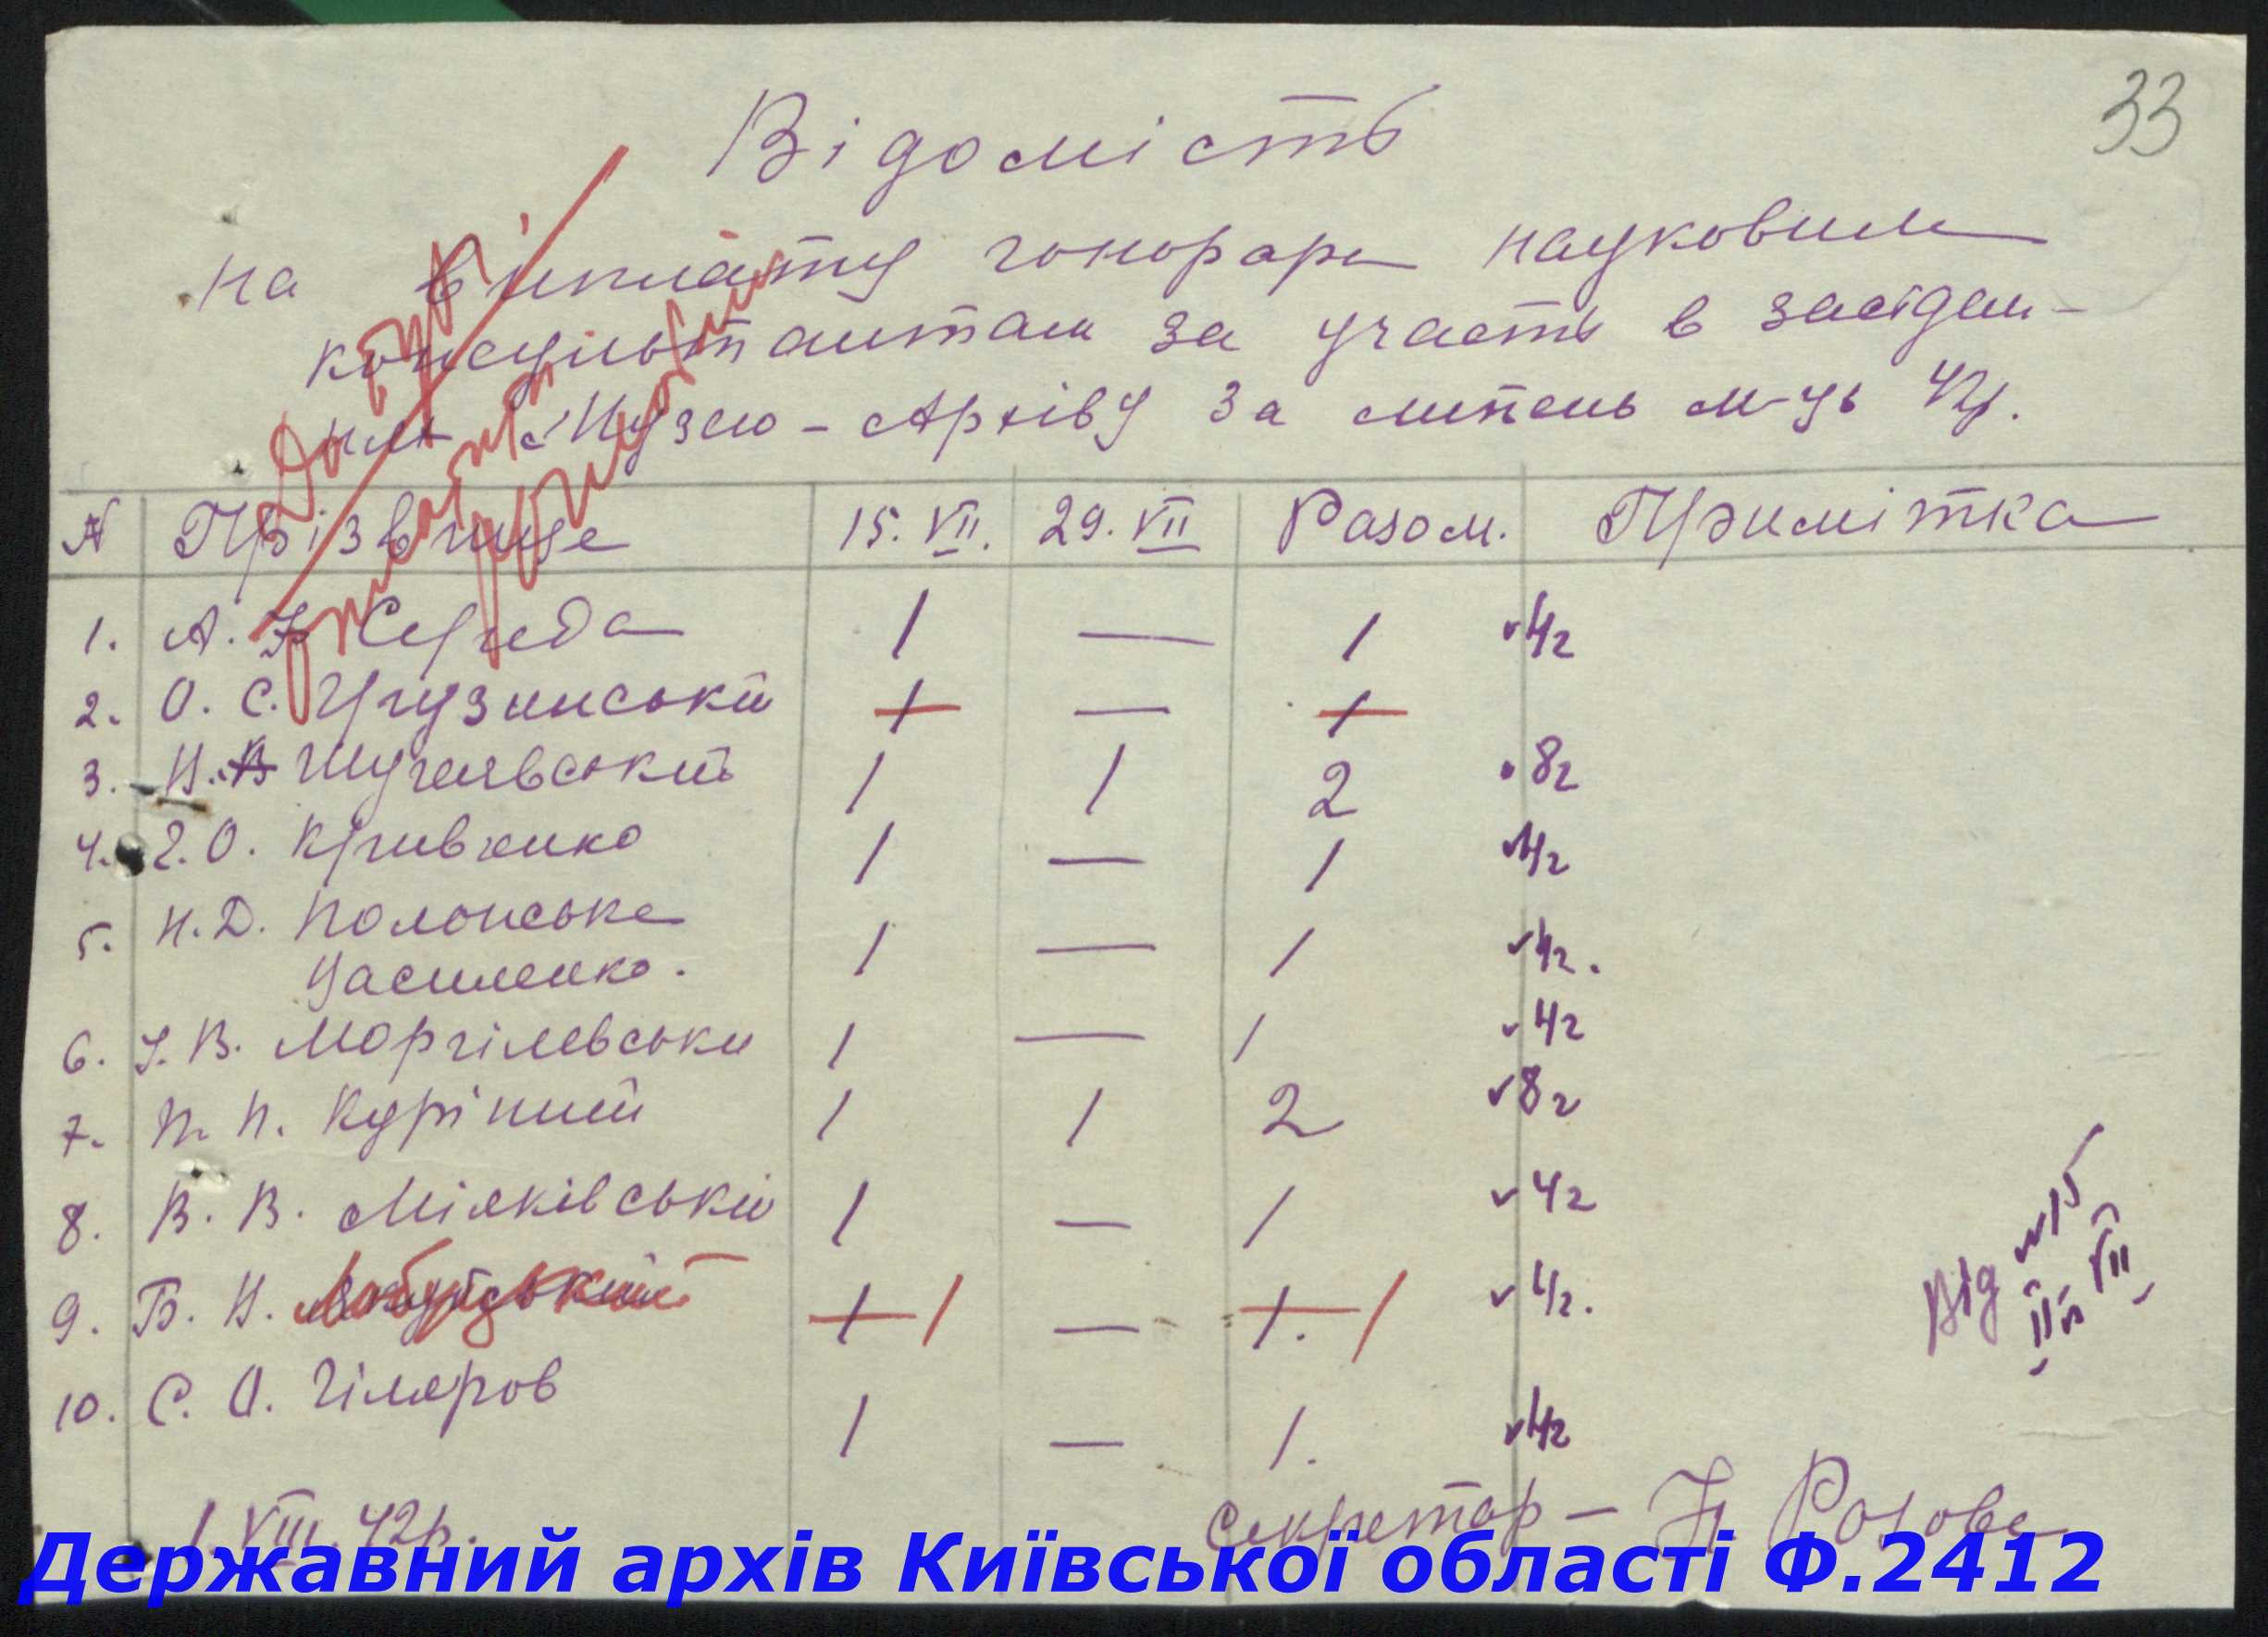 33
Відомість
на виплату гонорару науковим
консультантам за участь в засідан-
нях Музею-Архіву за липень м-ць 42р.
До бух.
N Прізвище 15. VII. 29. VII Разом. Примітка
1. А. Ф Середа 1 — 1 v 4г
2. О. С. Грузинський 1 — 1
3. Н. В Шугаєвський 1 1 2 v 8г
4. Є. О. Кривченко 1 — 1 v 4г
5. Н. Д. Полонська 1 — 1 v 4г.
Василенко.
6. І. В. Моргілевськи 1 — 1 v 4г
7. П. П. Курінний 1 1 2 v 8г
8. В. В. Міяківський 1 — 1 v 4г
Від 15
VII
9. Б. Н. 1 / — 1. / v 4г.
10. С. О. Гіляров 1 — 1. v 4г
1. VIII. 42р. Секретар – Розова
Державний архів Київської області Ф.2412